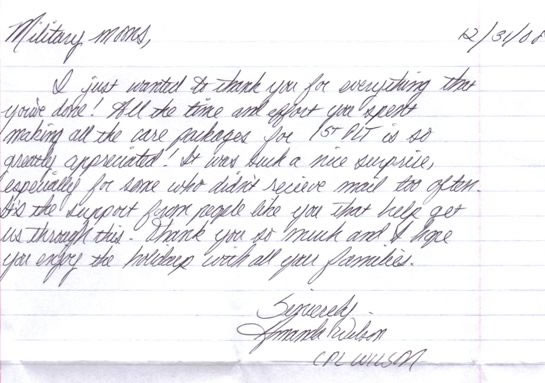 Military moms,
12/31/08
I just wanted to thank you for everything that
you've done! All the time and effort you spent
making all the care packages for 1st PLT is so
greatly appreciated! It was such a nice surprise,
especially for some who didn't recieve mail too often.
It's the support from people like you that help get
us through this. Thank you so much and I hope
you enjoy the holidays with all your families.
Sincerely,
Amanda Wilson
CPL WILSON